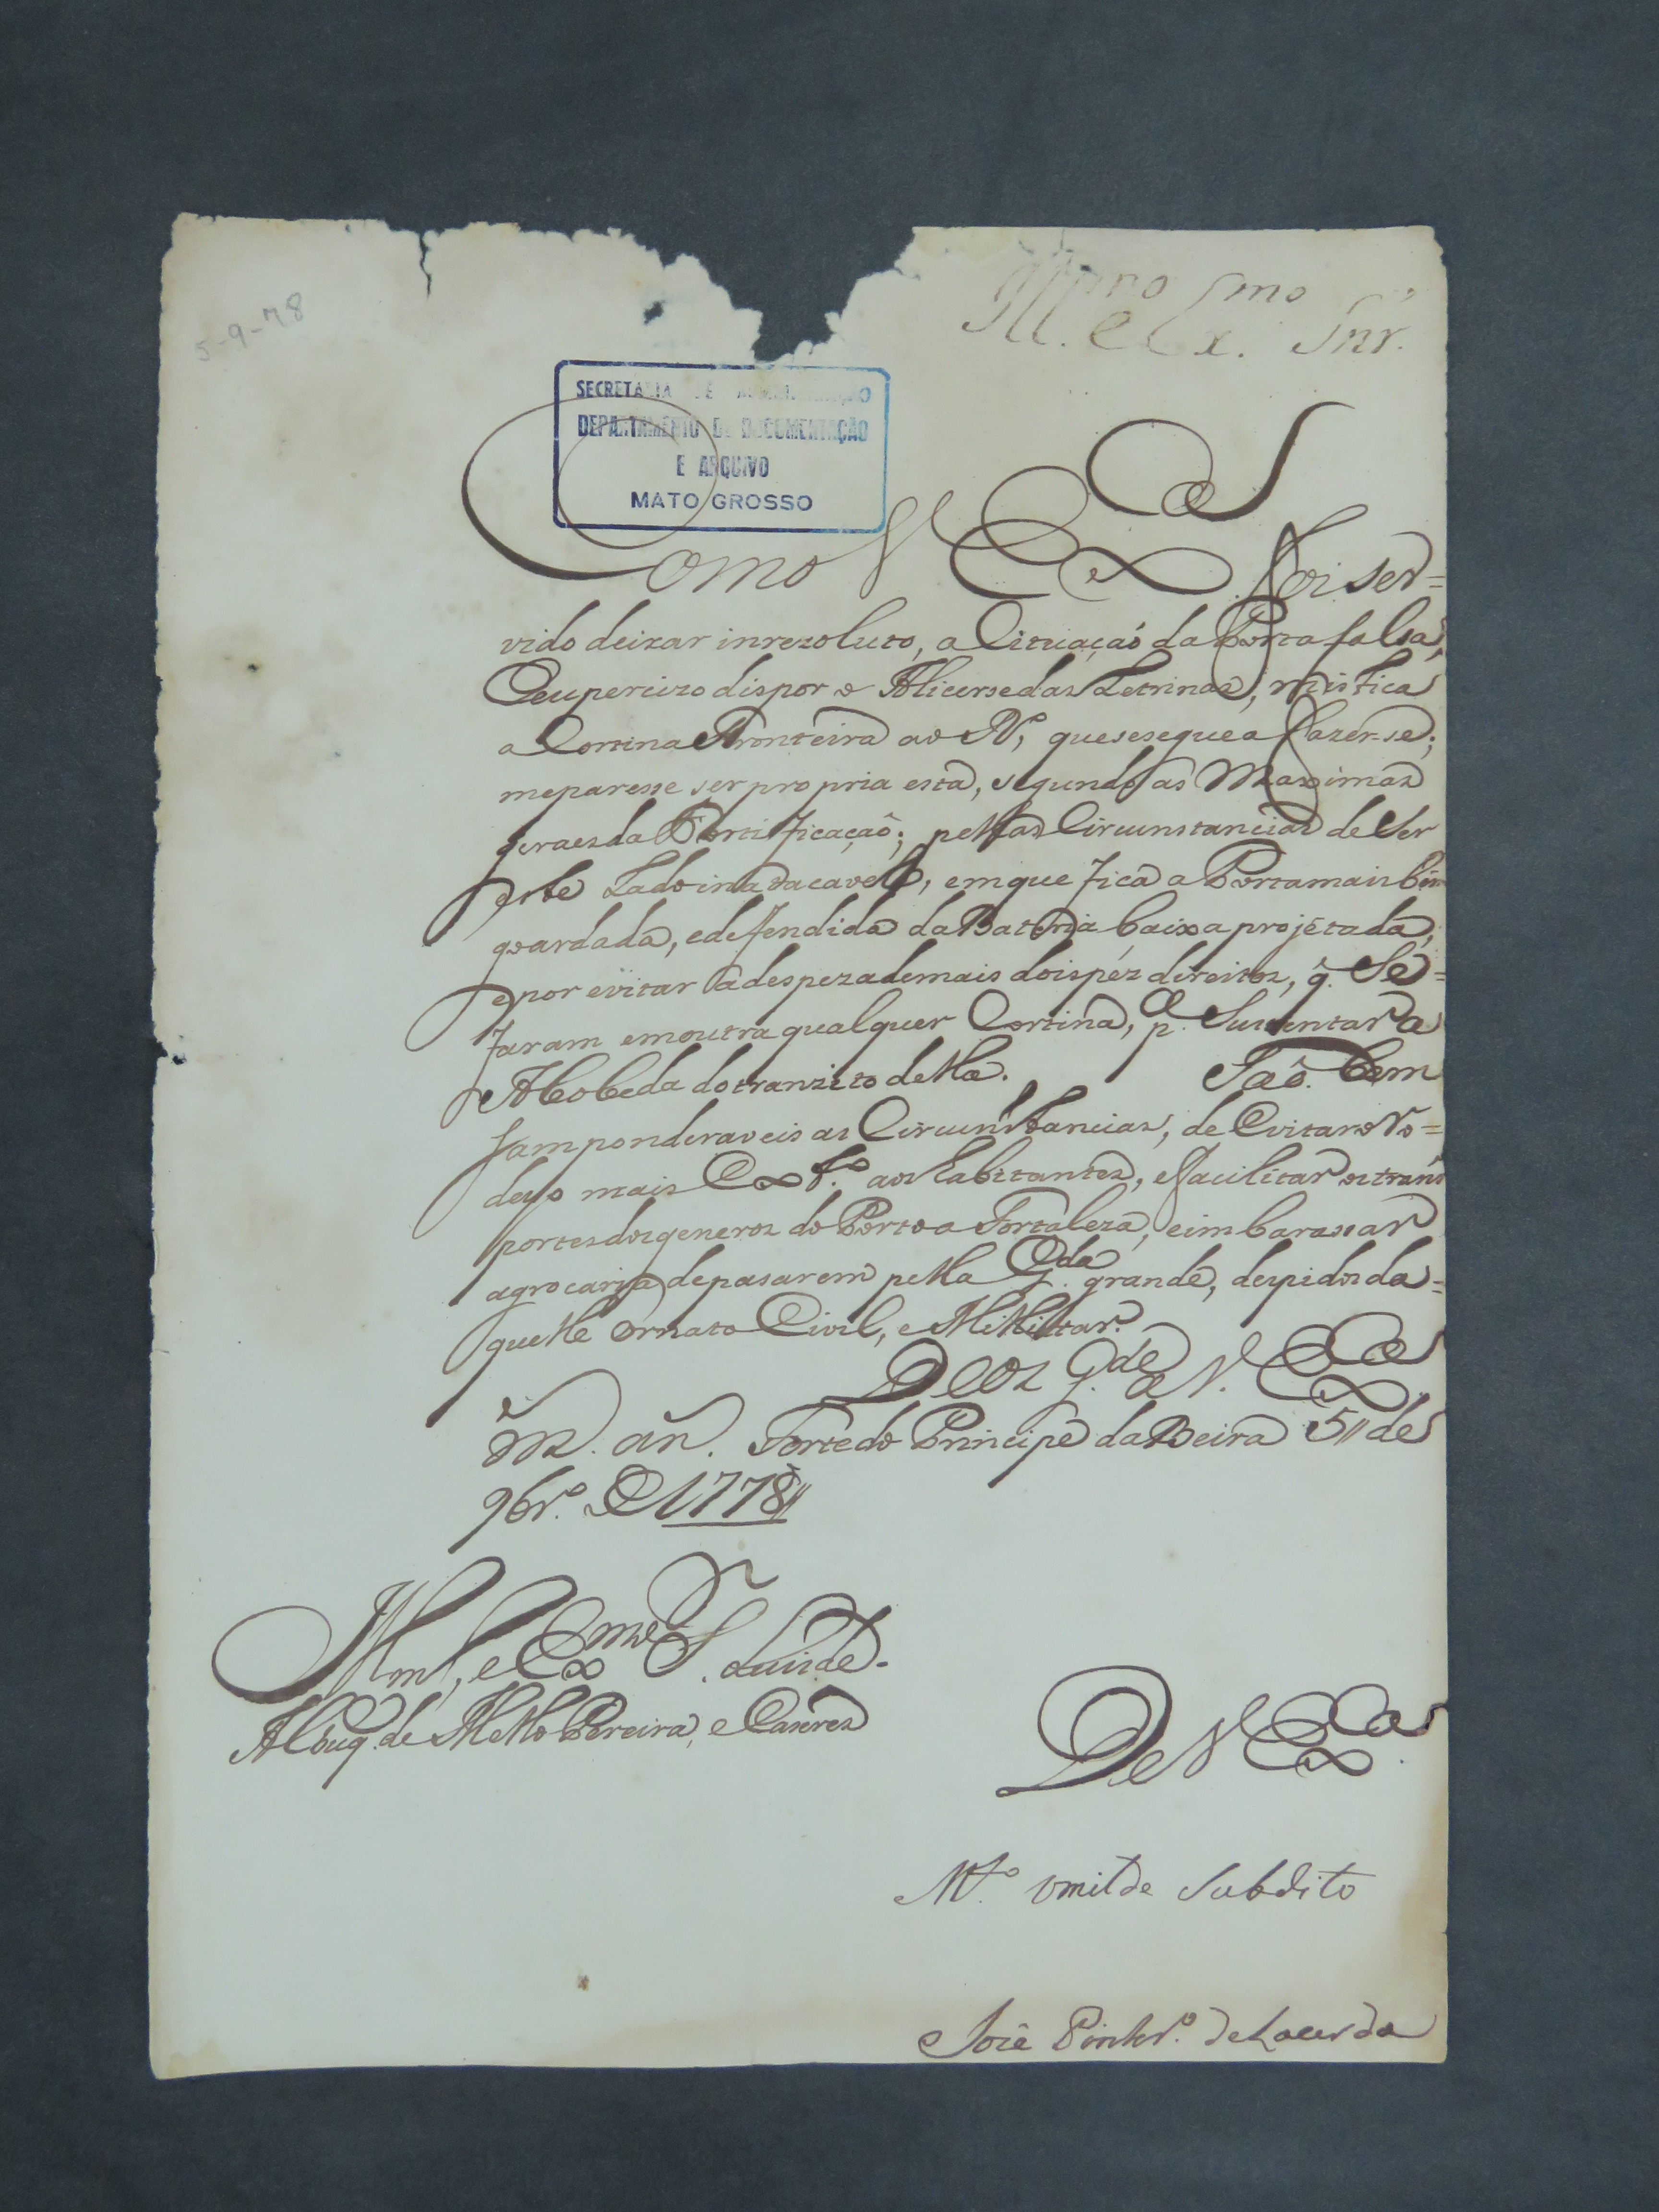 5-9-78
Ill.mo e Ex.mo Snr.
SECRETARIA DE ADMINISTRAÇÃO
DEPARTAMENTO DE DOCUMENTAÇÃO
E ARQUIVO
MATO GROSSO
Como V Ex.a foi ser=
vido deixar inrezoluto, a Cituaçaó da Porta falsa,
Eeupercizo dispor o Alicerse das Letrinas, mistica
a Cortina Fronteira ao N, que se segue a fazer-se;
meparesse ser propria esta, segundo as Maximas
geraes da Fortificaçaõ; pellas Circunstancias de Ser
este Lado inatacavel, em que fica a Porta mais bem
goardada, e deffendida da Bateria baixa projétada,
e por évitar a despeza de mais dois péz direitos, q̃. Se=
faram em outra qualquer Cortina, p.a Sustentar a
Abobeda do tranzito della. Taõ bem
sam ponderaveis as Circunstancias, de Evitar o Ro=
deyo mais Ext.o aos habitantes, e facilitar os trans
portes dos generos do Porto a Fortaleza, e imbarassar
a grocaria de pasarem pella G.da grande, despidos da=
quelle Ornato Civil, e Millitar.
Deos g.de a V. Ex.a
m. an. Forte do Principe da Beira 5 de
9br.o D 1778
Illm, e Exmo S. Luis de.
Albuq. de Mello Pereira, e Caseres
De V Ex.a
M.to vmilde Subdito
Jozê Pinhr.o de Lacerda